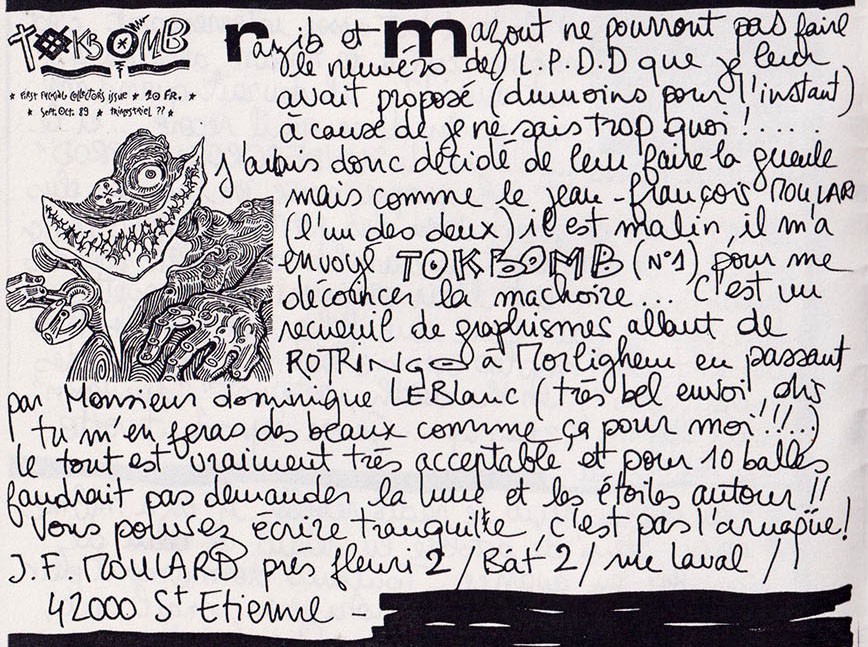 TOKBOMB
* FIRST SPECIAL COLLECTORS ISSUE * 20 FR. *
* Sept. Oct. 89 * TRIMESTRIEL ?? *
razib et mazout ne pourront pas faire
le numéro de L.P.D.D que je leur
avait proposé (dumoins pour l'instant)
à cause de je ne sais trop quoi !....
J'avais donc décidé de leur faire la gueule
mais comme le jean-françois MOULARD
(l'un des deux) il est malin, il m'a
envoyé TOKBOMB (N°1) pour me
décoincer la machoire... C'est un
recueuil de graphismes allant de
ROTRINGO à Morlighem en passant
par Monsieur dominique LEBlanc (très bel envoi, dis
tu m'en feras des beaux comme ça pour moi !!!...)
le tout est vraiment très acceptable et pour 10 balles
faudrait pas demander la lune et les étoiles autour !!
Vous pouvez écrire tranquille, c'est pas l'arnaque!
J.F. MOULARD près fleuri 2 / Bât 2 / rue Laval /
42000 St Etienne -